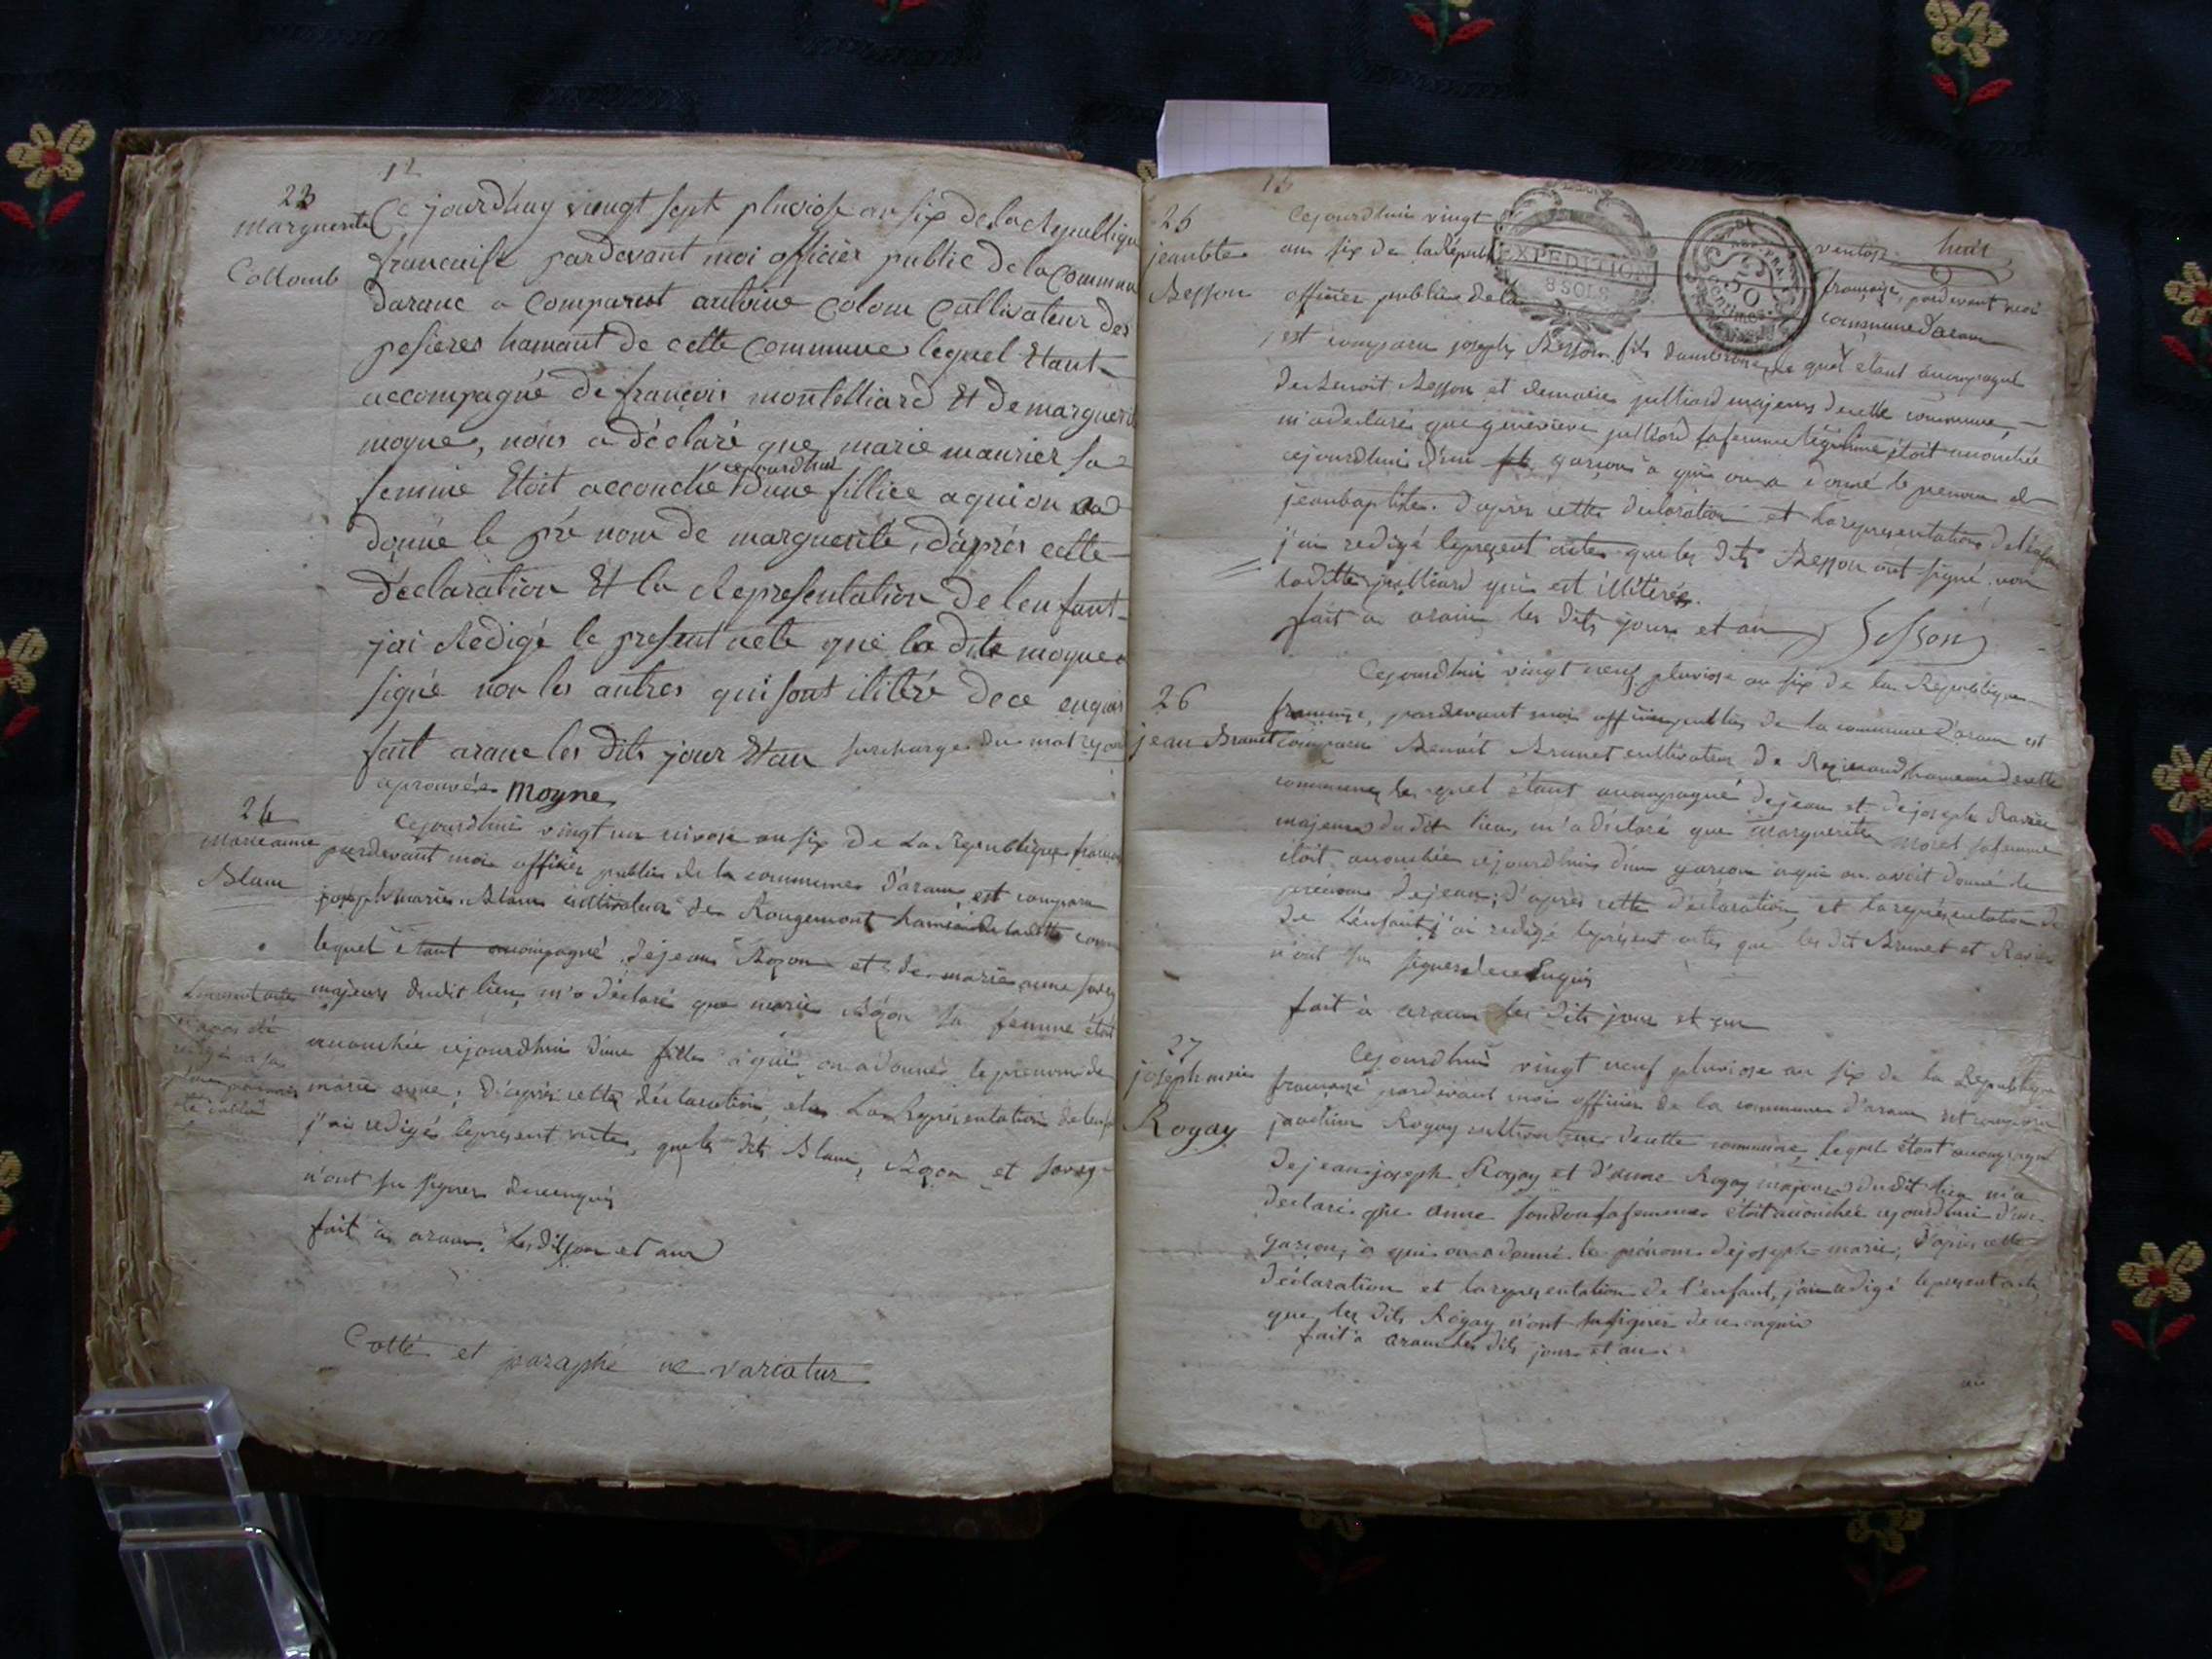 12
23
marguerite
Collomb
Ce jourdhuy vingt sept pluviose an six de la Republique
francaise pardevant moi officier public de la Commune
daranc a Comparut antoine Colom Cultivateur des
pesieres hamaut de cette Commune lequel Etant
accompagné de françois montelliard Et de marguerite
moyne, nous a déclaré que marie maurier sa
femme Etoit accouché cejourdhui dune fillie a qui on a
donné le pré nom de marguerite, d'après cette
déclaration Et la Representation de lenfant
jai Redigé le present acte que la dite moyne a
signé non les autres qui sont ilitéré de ce enquis
fait aranc les dits jour Et an surcharge du mot
aprouvée moyne
24
marieanne
Blanc
cejourdhui vingt un nivose an six de La Republique francaise
pardevant moi officier public de la commune d'aranc, est comparu
joseph marie Blanc cultivateur de Rougemont hameau de ladite
lequel étant acompagné de jean Bozon et de marie anne
majeurs dudit lieu, m'a déclaré que marie Bozon sa femme étoit
acouchée cejourdhui d'une fille à qui on a donné le prenom de
marie anne; d'après cette déclaration et La Représentation de lenfant
j'ai redigé le present acte, que les dits Blanc, Bozon et
n'ont su signer de ce enquis
fait à aranc Les dits jour et an
Cotté et paraphé ne variatur
13
25
jeanbte
Besson
cejourdhui vingt huit ventose
an six de la Republ française, pardevant moi
officier public de la commune daranc
EXPEDITION
8 SOLS
50
est comparu joseph Besson fils dambroise, le quel étant acompagné
de Benoit Besson et de marie julliard majeurs de cette commune,
m'a declaré que genevieve julliard sa femme légitime étoit acouchée
cejourdhui d'un garçon à qui on a donné le prenom de
jeanbaptiste. d'après cette declaration et la representation de l'enfant
j'ai redigé le present acte que les dits Besson ont signé non
ladite julliard qui est illitérée.
fait à aranc les dits jour et an Besson
26
jean Brunet
Cejourdhui vingt neuf pluviose an six de la Republique
francaise, pardevant moi officier public de la commune d'aranc est
comparu Benoit Brunet cultivateur de hameau de cette
commune, le quel étant acompagné de jean et de joseph Ravier
majeurs dudit lieu, m'a déclaré que Marguerite Morel sa femme
étoit acouchée cejourdhui d'un garçon à qui on avoit donné le
prénom de jean; d'après cette déclaration, et la représentation de
de L'enfant j'ai redigé le présent acte que les dit Brunet et Ravier
n'ont su signer de ce Enquis
fait à aranc les dits jour et an
27
joseph marie
Rogay
Cejourdhui vingt neuf pluviose an six de la Republique
française pardevant moi officier de la commune d'aranc est comparu
joachim Rogay cultivateur de cette commune, lequel étant acompagné
de jean joseph Rogay et d'anne Rogay majeurs dudit lieu m'a
declaré que anne sa femme étoit acouchée cejourdhui d'un
garçon, à qui on a donné le prénom de joseph marie, d'après cette
déclaration et la representation de l'enfant, j'ai redigé le present acte
que les dits Rogay n'ont su signer de ce enquis
fait à aranc les dits jour et an.